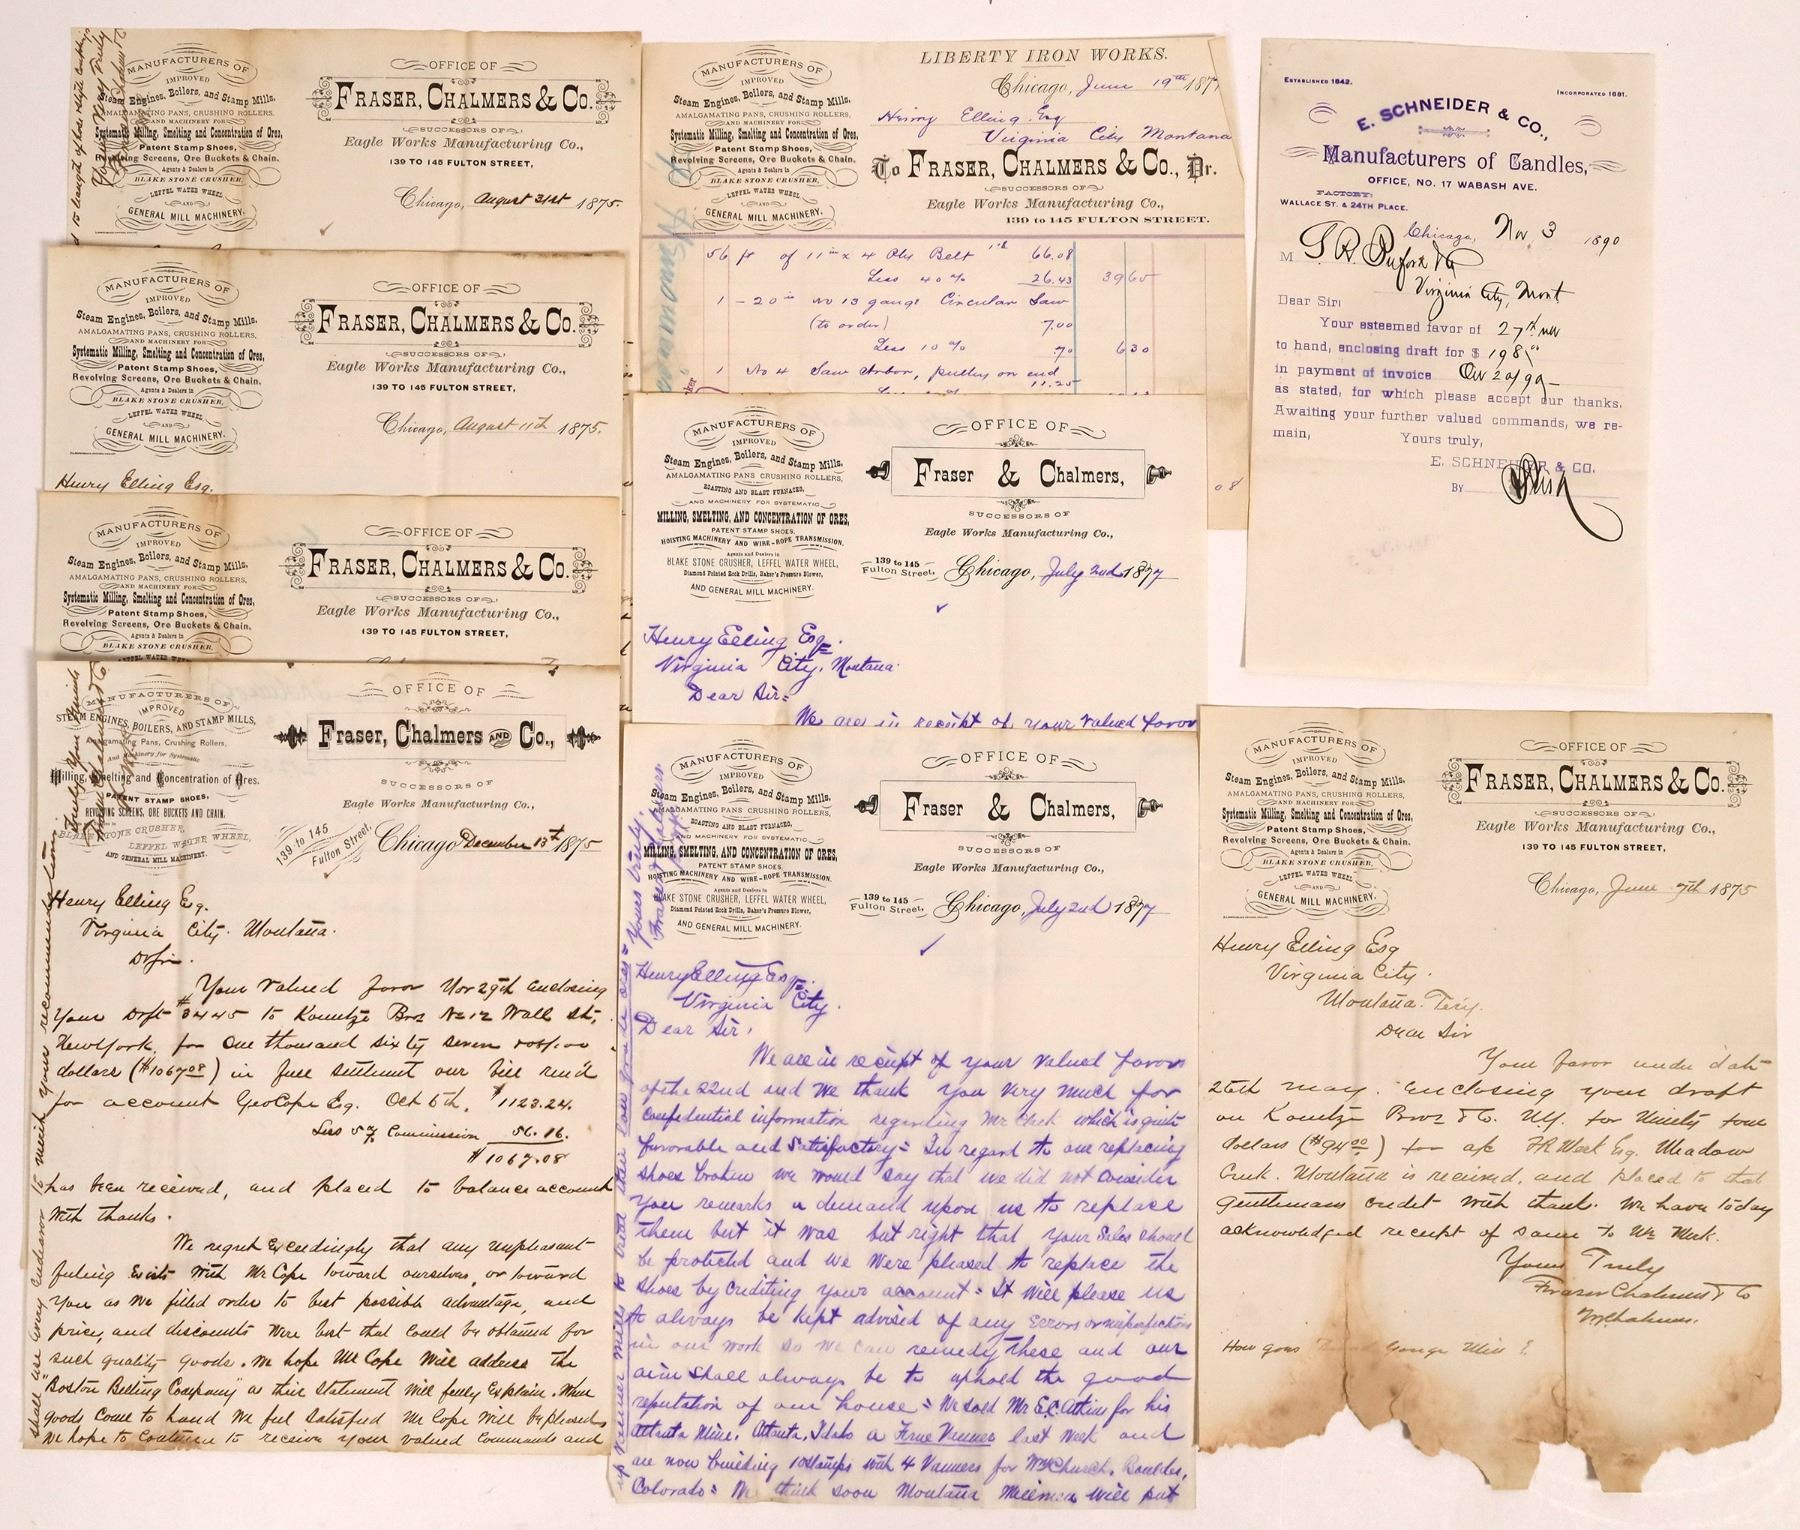 MANUFACTURERS OF
IMPROVED
Steam Engines, Boilers, and Stamp Mills,
AMALGAMATING PANS, CRUSHING ROLLERS,
AND MACHINERY FOR
Systematic Milling, Smelting and Concentration of Ores,
Patent Stamp Shoes,
Revolving Screens, Ore Buckets & Chain.
Agents & Dealers in
BLAKE STONE CRUSHER,
LEFFEL WATER WHEEL,
AND
GENERAL MILL MACHINERY.
OFFICE OF
FRASER, CHALMERS & CO.
SUCCESSORS OF
Eagle Works Manufacturing Co.,
139 TO 145 FULTON STREET,
Chicago, August 31st 1875.
Yours Truly
MANUFACTURERS OF
IMPROVED
Steam Engines, Boilers, and Stamp Mills,
AMALGAMATING PANS, CRUSHING ROLLERS,
AND MACHINERY FOR
Systematic Milling, Smelting and Concentration of Ores,
Patent Stamp Shoes,
Revolving Screens, Ore Buckets & Chain.
Agents & Dealers in
BLAKE STONE CRUSHER,
LEFFEL WATER WHEEL,
AND
GENERAL MILL MACHINERY.
OFFICE OF
FRASER, CHALMERS & CO.
SUCCESSORS OF
Eagle Works Manufacturing Co.,
139 TO 145 FULTON STREET,
Chicago, August 11th 1875.
Henry Elling Esq.
MANUFACTURERS OF
IMPROVED
Steam Engines, Boilers, and Stamp Mills,
AMALGAMATING PANS, CRUSHING ROLLERS,
AND MACHINERY FOR
Systematic Milling, Smelting and Concentration of Ores,
Patent Stamp Shoes,
Revolving Screens, Ore Buckets & Chain.
Agents & Dealers in
BLAKE STONE CRUSHER,
LEFFEL WATER WHEEL
OFFICE OF
FRASER, CHALMERS & CO.
SUCCESSORS OF
Eagle Works Manufacturing Co.,
139 TO 145 FULTON STREET,
MANUFACTURERS OF
IMPROVED
STEAM ENGINES, BOILERS, AND STAMP MILLS,
Amalgamating Pans, Crushing Rollers,
And Machinery for Systematic
Milling, Smelting and Concentration of Ores.
PATENT STAMP SHOES,
REVOLVING SCREENS, ORE BUCKETS AND CHAIN,
BLAKE STONE CRUSHER,
LEFFEL WATER WHEEL,
AND GENERAL MILL MACHINERY.
OFFICE OF
Fraser, Chalmers AND Co.,
SUCCESSORS OF
Eagle Works Manufacturing Co.,
139 to 145
Fulton Street,
Chicago December 13th 1875
Henry Elling Esq.
Virginia City. Montana.
D Sir.
Your valued favor Nov 29th enclosing
your Drft # 3445 to Kountze Bros No 12 Wall St,
New York, for One thousand sixty seven 08/100
dollars ($1067.08) in full settlement our bill rend
for account Geo Cope Esq. Oct 6th, $1123.24.
Less 5% Commission 56.16.
$1067.08
has been received, and placed to balance account
with thanks.
We regret Exceedingly that any unpleasant
feeling Exists with Mr Cope toward ourselves, or toward
you as we filled order to best possible advantage, and
price, and discounts were best that could be obtained for
such quality goods. We hope Mr Cope will address the
"Boston Belting Company" as their statement will fully Explain. When
goods come to hand we feel satisfied Mr Cope will be pleased
We hope to continue to receive your valued commands and
shall use every endeavor to merit your recommendation.
MANUFACTURERS OF
IMPROVED
Steam Engines, Boilers, and Stamp Mills,
AMALGAMATING PANS, CRUSHING ROLLERS,
AND MACHINERY FOR
Systematic Milling, Smelting and Concentration of Ores,
Patent Stamp Shoes,
Revolving Screens, Ore Buckets & Chain.
Agents & Dealers in
BLAKE STONE CRUSHER,
LEFFEL WATER WHEEL,
AND
GENERAL MILL MACHINERY.
LIBERTY IRON WORKS.
Chicago, June 19th 187
Henry Elling Esq
Virginia City Montana
To FRASER, CHALMERS & CO., Dr.
SUCCESSORS OF
Eagle Works Manufacturing Co.,
139 to 145 FULTON STREET.
56 ft of 11 in x 4 Ply Belt 1.18 66.08
Less 40% 26.43 39 65
1 - 20 in No 13 gauge Circular Saw
(to order) 7.00
Less 10% 70 6 30
1 No 4 Saw Arbor, pulley on end
11.25
08
MANUFACTURERS OF
IMPROVED
Steam Engines, Boilers, and Stamp Mills,
AMALGAMATING PANS CRUSHING ROLLERS,
ROASTING AND BLAST FURNACES,
AND MACHINERY FOR SYSTEMATIC
MILLING, SMELTING, AND CONCENTRATION OF ORES,
PATENT STAMP SHOES,
HOISTING MACHINERY AND WIRE-ROPE TRANSMISSION.
Agents and Dealers in
BLAKE STONE CRUSHER, LEFFEL WATER WHEEL,
Diamond Pointed Rock Drills, Baker's Pressure Blower,
AND GENERAL MILL MACHINERY.
OFFICE OF
Fraser & Chalmers,
SUCCESSORS OF
Eagle Works Manufacturing Co.,
139 to 145
Fulton Street,
Chicago, July 2nd 1877
Henry Elling Esq.
Virginia City, Montana.
Dear Sir:
We are in receipt of your valued favor
MANUFACTURERS OF
IMPROVED
Steam Engines, Boilers, and Stamp Mills,
AMALGAMATING PANS CRUSHING ROLLERS,
ROASTING AND BLAST FURNACES,
AND MACHINERY FOR SYSTEMATIC
MILLING, SMELTING, AND CONCENTRATION OF ORES,
PATENT STAMP SHOES,
HOISTING MACHINERY AND WIRE-ROPE TRANSMISSION.
Agents and Dealers in
BLAKE STONE CRUSHER, LEFFEL WATER WHEEL,
Diamond Pointed Rock Drills, Baker's Pressure Blower,
AND GENERAL MILL MACHINERY.
OFFICE OF
Fraser & Chalmers,
SUCCESSORS OF
Eagle Works Manufacturing Co.,
139 to 145
Fulton Street,
Chicago, July 2nd 1877
Henry Elling Esq.
Virginia City.
Dear Sir,
We are in receipt of your valued favor
of the 22nd and we thank you very much for
confidential information regarding Mr which is quite
favorable and satisfactory = In regard to our replacing
shoes broken we would say that we did not consider
your remarks a demand upon us to replace
them but it was but right that your Sales should
be protected and we were pleased to replace the
shoes by crediting your account = It will please us
to always be kept advised of any Errors or imperfections
in our work so we can remedy these and our
aim shall always be to uphold the good
reputation of our house = We sold Mr E.C. Atkins for his
Atlanta Mine, Atlanta, Idaho a Frue Vanner last week and
are now building 10 Stamps with 4 Vanners for Wm Church, Boulder,
Colorado = We think soon Montana Millmen will put
Yours truly,
Fraser & Chalmers
ESTABLISHED 1842.
INCORPORATED 1881.
E. SCHNEIDER & CO.,
Manufacturers of Candles,
OFFICE, NO. 17 WABASH AVE.
FACTORY:
WALLACE ST. & 24TH PLACE.
Chicago, Nov 3 1890
M T. R. Buford & Co
Virginia City, Mont
Dear Sir:
Your esteemed favor of 27th
to hand, enclosing draft for $ 198
in payment of invoice Oct 20/90
as stated, for which please accept our thanks.
Awaiting your further valued commands, we re-
main, Yours truly,
E. SCHNEIDER & CO.
By
MANUFACTURERS OF
IMPROVED
Steam Engines, Boilers, and Stamp Mills,
AMALGAMATING PANS, CRUSHING ROLLERS,
AND MACHINERY FOR
Systematic Milling, Smelting and Concentration of Ores,
Patent Stamp Shoes,
Revolving Screens, Ore Buckets & Chain.
Agents & Dealers in
BLAKE STONE CRUSHER,
LEFFEL WATER WHEEL
AND
GENERAL MILL MACHINERY.
OFFICE OF
FRASER, CHALMERS & CO.
SUCCESSORS OF
Eagle Works Manufacturing Co.,
139 TO 145 FULTON STREET,
Chicago, June 7th 1875
Henry Elling Esq
Virginia City.
Montana Tery.
Dear Sir
Your favor under date
26th May. Enclosing your draft
on Kountze Bros & Co. NY. for Ninety four
dollars ($94.00) for a/c Esq. Meadow
Creek. Montana is received, and placed to that
gentlemans credit with thanks. We have today
acknowledged receipt of same to Mr
Yours Truly
Fraser Chalmers & Co
How goes George Mill ?